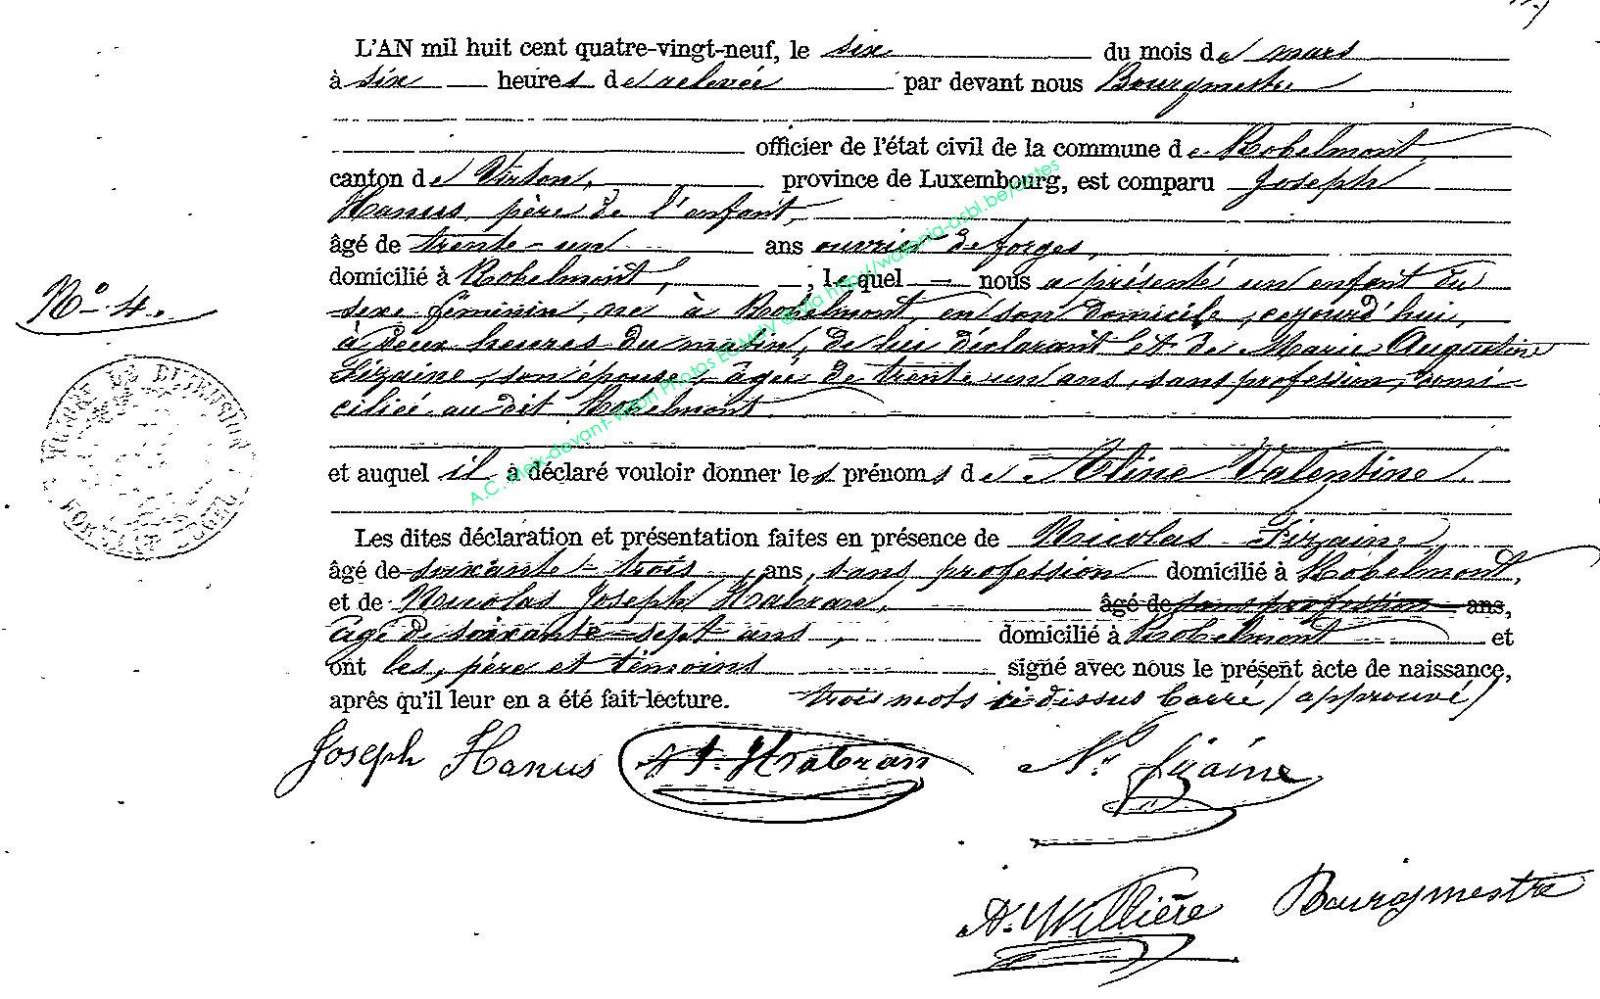 L'AN mil huit cent quatre-vingt-neuf, le six du mois de mars
à six heures de relevée par devant nous Bourgmestre
officier de l'état civil de la commune de Robelmont,
canton de Virton, province de Luxembourg, est comparu Joseph
Hanus, père de l'enfant,
âgé de trente-un ans ouvrier de forges,
domicilié à Robelmont, ; lequel nous a présenté un enfant du
N° 4.
sexe féminin, né à Robelmont, en son domicile, cejourd'hui,
à deux heures du matin, de lui déclarant et de Marie Augustine
Fizaine, son épouse, âgée de trente un ans, sans profession, domi-
ciliée au dit Robelmont.
et auquel il a déclaré vouloir donner les prénoms de Aline Valentine.
Les dites déclaration et présentation faites en présence de Nicolas Fizaine
âgé de soixante-trois ans, sans profession domicilié à Robelmont,
et de Nicolas Joseph Habran, âgé de sans profession ans,
âgé de soixante-sept ans, domicilié à Robelmont et
ont les, père et témoins signé avec nous le présent acte de naissance,
après qu'il leur en a été fait lecture. trois mots ci dessus barré (approuvé)
Joseph Hanus N J. Habran Nas fizaine
A. Willière Bourgmestre
A.C. Meix-devant-Virton Photos